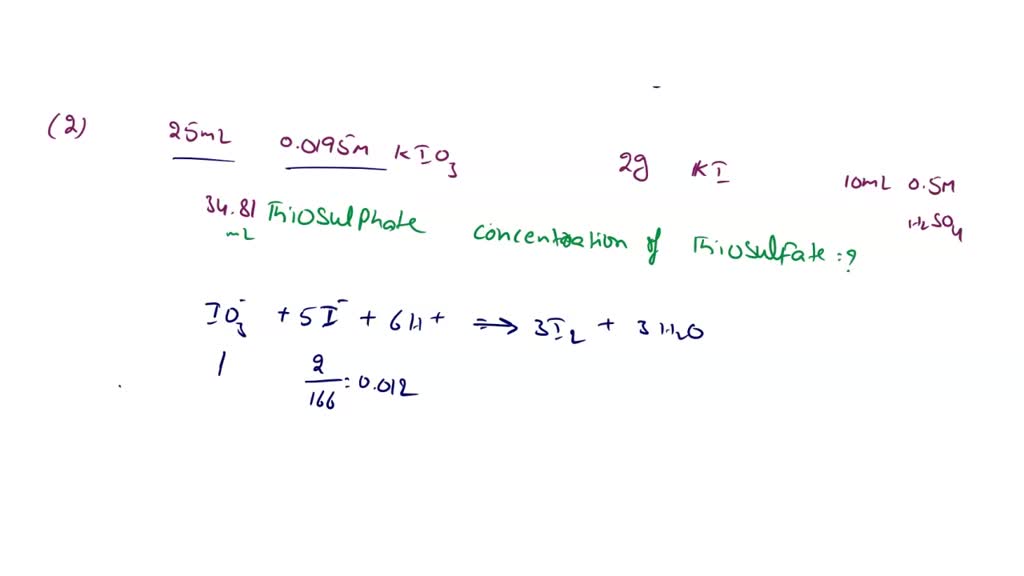 (2) 25mL 0.0195M KIO3 2g KI 10mL 0.5M H2SO4
34.81 mL Thiosulphate concentration of Thiosulfate = ?
IO3- + 5I- + 6H+ ⇒ 3I2 + 3H2O
1 2/166 = 0.012